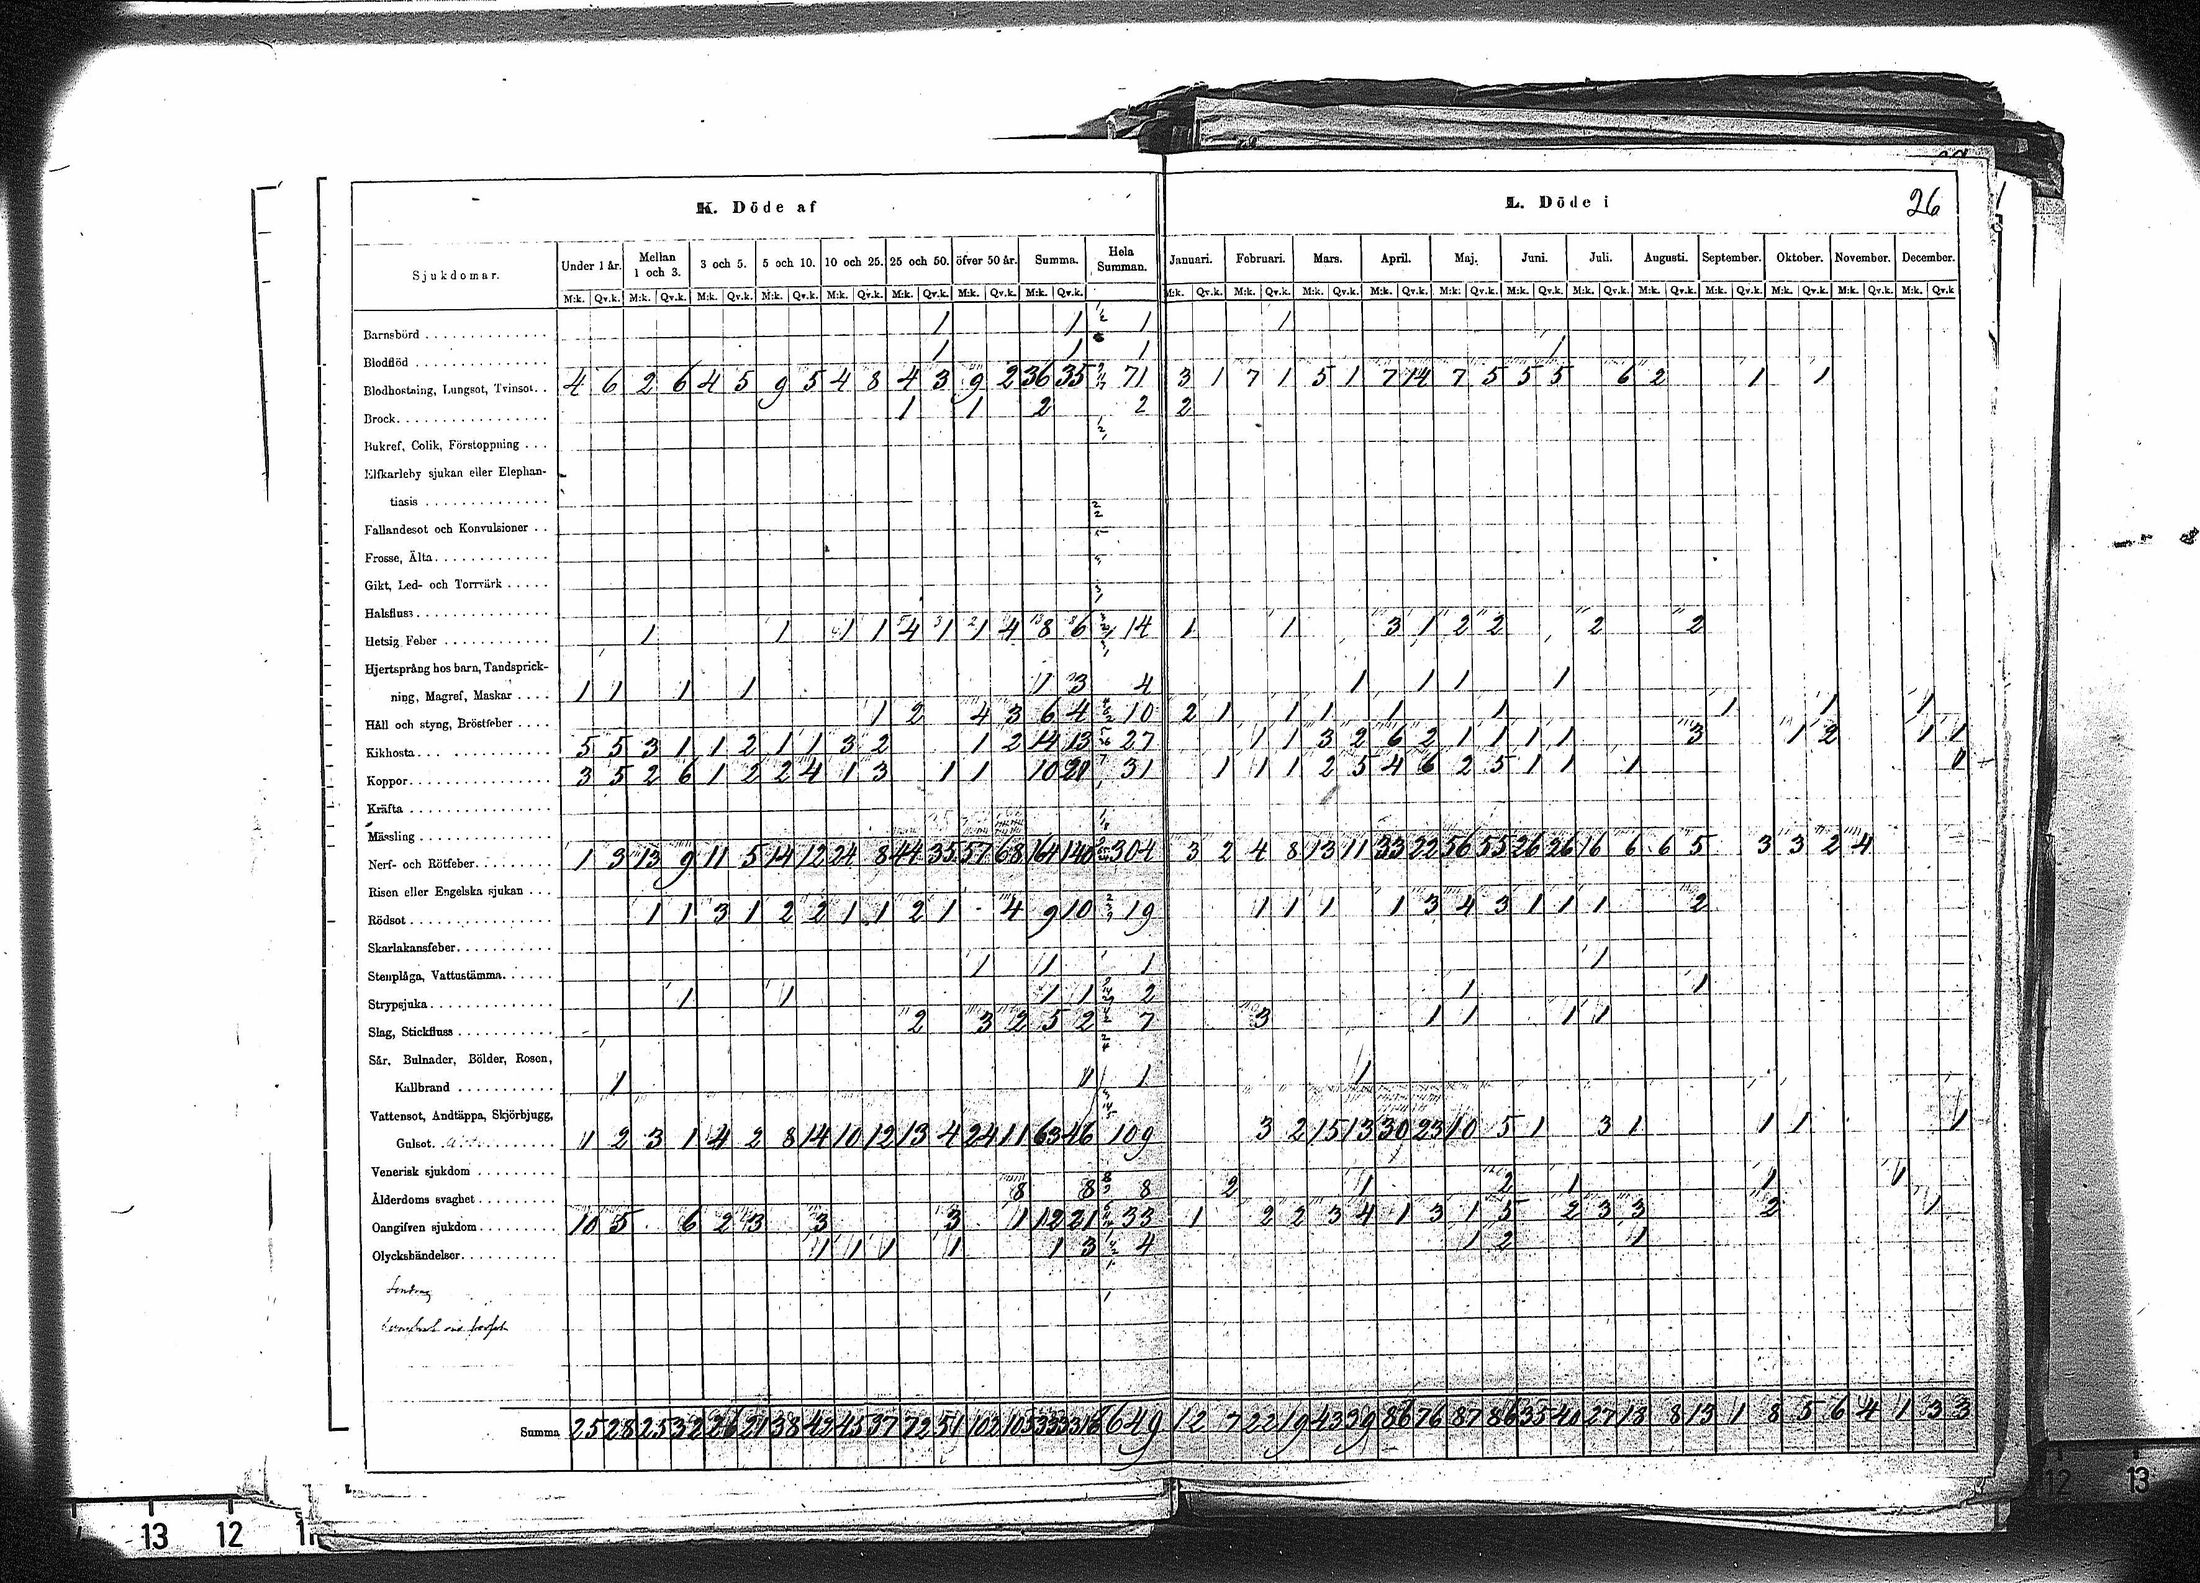 26
K. Döde af
L. Döde i
Sjukdomar.
Under 1 år. Mellan 1 och 3. 3 och 5. 5 och 10. 10 och 25. 25 och 50. öfver 50 år. Summa. Hela Summan. Januari. Februari. Mars. April. Maj. Juni. Juli. Augusti. September. Oktober. November. December.
M:k. Qv.k. M:k. Qv.k. M:k. Qv.k. M:k. Qv.k. M:k. Qv.k. M:k. Qv.k. M:k. Qv.k. M:k. Qv.k. M:k. Qv.k. M:k. Qv.k. M:k. Qv.k. M:k. Qv.k. M:k. Qv.k. M:k. Qv.k. M:k. Qv.k. M:k. Qv.k. M:k. Qv.k. M:k. Qv.k. M:k. Qv.k. M:k. Qv.k
Barnsbörd 1 1 1 1
Blodflöd 1 1 1 1
Blodhostning, Lungsot, Tvinsot. 4 6 2 6 4 5 9 5 4 8 4 3 9 2 36 35 71 3 1 7 1 5 1 7 14 7 5 5 5 6 2 1 1
Brock. 1 1 2 2 2
Bukref, Colik, Förstoppning
Elfkarleby sjukan eller Elephan-
tiasis
Fallandesot och Konvulsioner
Frosse, Älta
Gikt, Led- och Torrvärk
Halsfluss
Hetsig Feber 1 1 1 1 4 1 1 4 8 6 14 1 1 3 1 2 2 2 2
Hjertsprång hos barn, Tandsprick-
ning, Magref, Maskar 1 1 1 1 1 3 4 1 1 1 1
Håll och styng, Bröstfeber 1 2 4 3 6 4 10 2 1 1 1 1 1 1 1 1
Kikhosta 5 5 3 1 1 2 1 1 3 2 1 2 14 13 27 1 1 3 2 6 2 1 1 1 1 3 1 2 1 1
Koppor 3 5 2 6 1 2 2 4 1 3 1 1 10 21 31 1 1 1 2 5 4 6 2 5 1 1 1 1
Kräfta
Mässling
Nerf- och Rötfeber 1 3 13 9 11 5 14 12 24 8 44 35 57 68 164 140 304 3 2 4 8 13 11 33 22 56 55 26 26 16 6 6 5 3 3 2 4
Risen eller Engelska sjukan
Rödsot 1 1 3 1 2 2 1 1 2 1 4 9 10 19 1 1 1 1 3 4 3 1 1 1 2
Skarlakansfeber
Stenplåga, Vattustämma 1 1 1 1
Strypsjuka 1 1 1 1 2 1 1
Slag, Stickfluss 2 3 2 5 2 7 3 1 1 1 1
Sår, Bulnader, Bölder, Rosen,
Kallbrand 1 1 1 1
Vattensot, Andtäppa, Skjörbjugg,
Gulsot. 1 2 3 1 4 2 8 14 10 12 13 4 24 11 63 46 109 3 2 15 13 30 23 10 5 1 3 1 1 1 1
Venerisk sjukdom
Ålderdoms svaghet 8 8 8 2 1 2 1 1 1
Oangifven sjukdom 10 5 6 2 3 3 3 1 12 21 33 1 2 2 3 4 1 3 1 5 2 3 3 2 1
Olyckshändelser 1 1 1 1 1 3 4 1 2 1
Summa 25 28 25 32 26 21 38 42 45 37 72 51 102 105 333 316 649 12 7 22 19 43 39 86 76 87 86 35 40 27 18 8 13 1 8 5 6 4 1 3 3
13 12 12 13